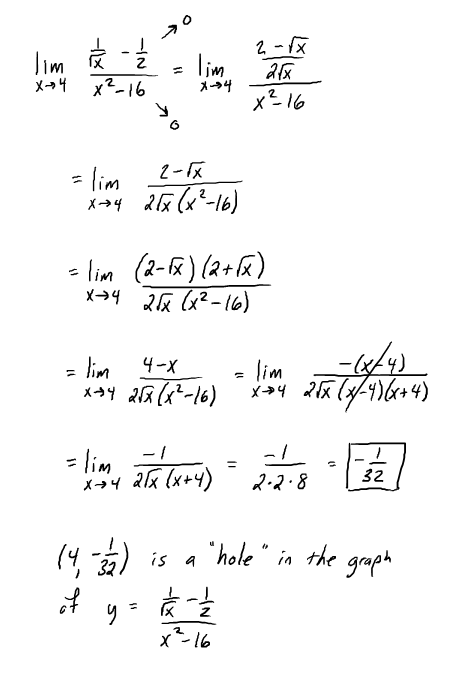 lim x→4 (1/√x - 1/2)/(x²-16) →0 →0 = lim x→4 ((2-√x)/(2√x))/(x²-16)
= lim x→4 (2-√x)/(2√x (x²-16))
= lim x→4 ((2-√x)(2+√x))/(2√x (x²-16))
= lim x→4 (4-x)/(2√x (x²-16)) = lim x→4 (-(x-4))/(2√x (x-4)(x+4))
= lim x→4 (-1)/(2√x (x+4)) = (-1)/(2·2·8) = -1/32
(4, -1/32) is a "hole" in the graph
of y = (1/√x - 1/2)/(x²-16)